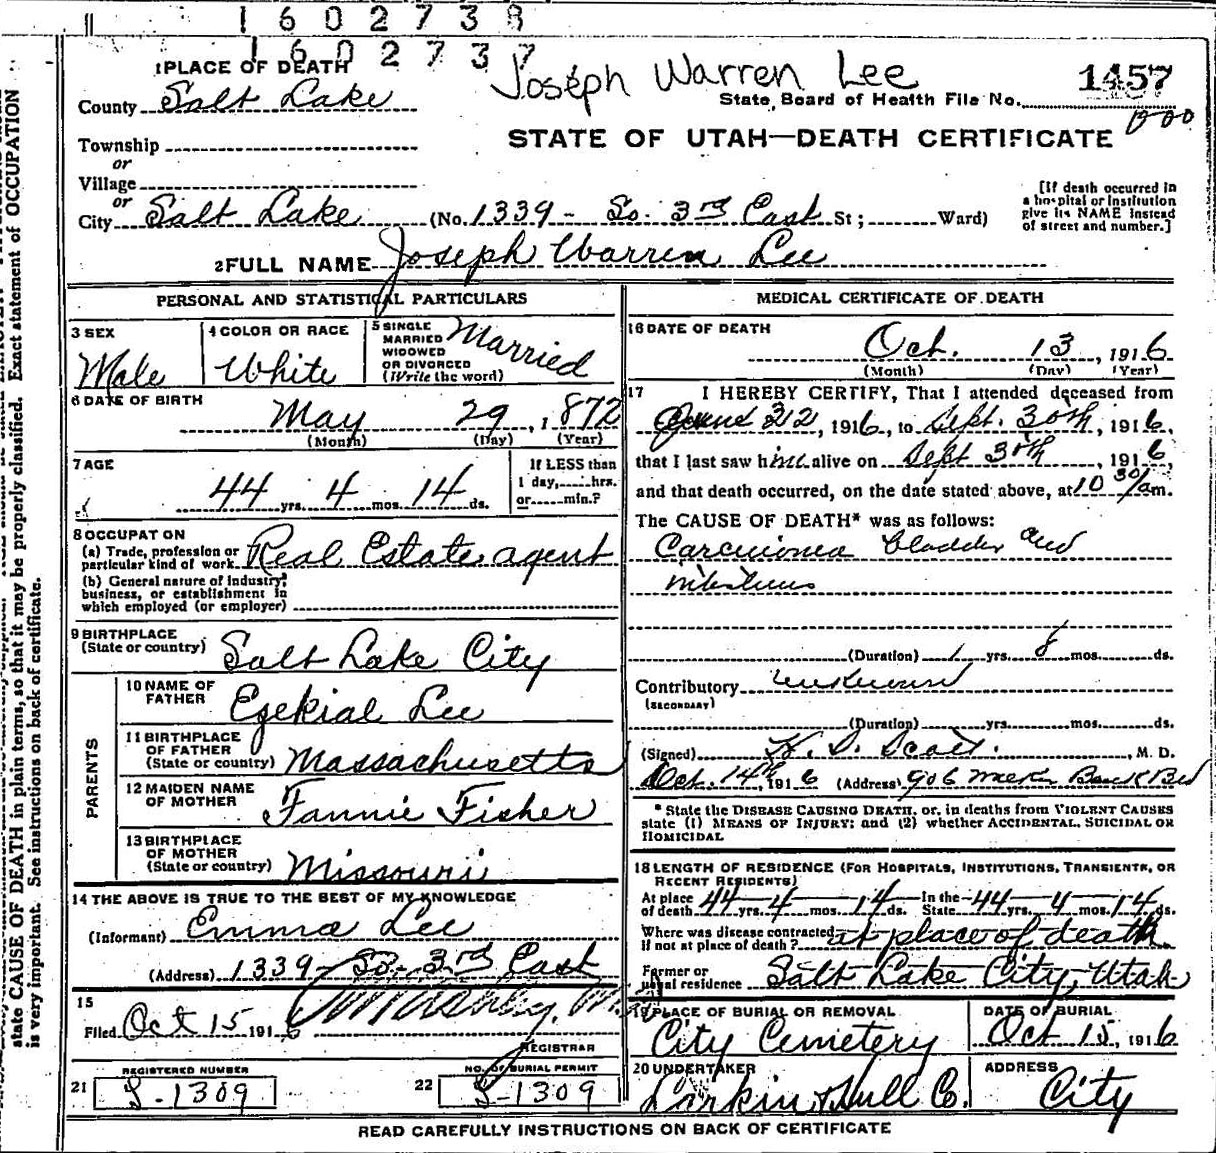 1602738
1602737
Joseph Warren Lee
1457
1 PLACE OF DEATH
County Salt Lake
State Board of Health File No.
Township
or
STATE OF UTAH—DEATH CERTIFICATE
Village
or
City Salt Lake (No. 1339 - So. 3rd East St; Ward)
[If death occurred in
a hospital or institution
give its NAME instead
of street and number.]
2 FULL NAME Joseph Warren Lee
PERSONAL AND STATISTICAL PARTICULARS
3 SEX
Male
4 COLOR OR RACE
White
5 SINGLE
MARRIED
WIDOWED
OR DIVORCED
(Write the word)
Married
6 DATE OF BIRTH
May 29, 1872
(Month) (Day) (Year)
7 AGE
44 yrs. 4 mos. 14 ds.
If LESS than
1 day, hrs.
or min.?
8 OCCUPATION
(a) Trade, profession or
particular kind of work Real Estate agent
(b) General nature of Industry,
business, or establishment in
which employed (or employer)
9 BIRTHPLACE
(State or country) Salt Lake City
PARENTS
10 NAME OF
FATHER Ezekial Lee
11 BIRTHPLACE
OF FATHER
(State or country) Massachusetts
12 MAIDEN NAME
OF MOTHER Fannie Fisher
13 BIRTHPLACE
OF MOTHER
(State or country) Missouri
14 THE ABOVE IS TRUE TO THE BEST OF MY KNOWLEDGE
(Informant) Emma Lee
(Address) 1339 So. 3rd East
15
Filed Oct 15 1916
REGISTRAR
21 REGISTERED NUMBER
S-1309
22 NO. OF BURIAL PERMIT
S-1309
MEDICAL CERTIFICATE OF DEATH
16 DATE OF DEATH
Oct. 13, 1916
(Month) (Day) (Year)
17 I HEREBY CERTIFY, That I attended deceased from
1916, to Sept. 30th, 1916,
that I last saw him alive on Sept 30th, 1916,
and that death occurred, on the date stated above, at 10 30/am.
The CAUSE OF DEATH* was as follows:
Carcinoma bladder and
intestines
(Duration) 1 yrs. 8 mos. ds.
Contributory unknown
(SECONDARY)
(Duration) yrs. mos. ds.
(Signed) , M. D.
Oct. 14th, 1916 (Address) 906
* State the DISEASE CAUSING DEATH, or, in deaths from VIOLENT CAUSES
state (1) MEANS OF INJURY; and (2) whether ACCIDENTAL, SUICIDAL OR
HOMICIDAL
18 LENGTH OF RESIDENCE (FOR HOSPITALS, INSTITUTIONS, TRANSIENTS, OR
RECENT RESIDENTS)
At place of death 44 yrs. 4 mos. 14 ds. In the State 44 yrs. 4 mos. 14 ds.
Where was disease contracted
if not at place of death? at place of death
Former or
usual residence Salt Lake City, Utah
19 PLACE OF BURIAL OR REMOVAL
City Cemetery
DATE OF BURIAL
Oct 15, 1916
20 UNDERTAKER
Larkin Hull Co.
ADDRESS
City
READ CAREFULLY INSTRUCTIONS ON BACK OF CERTIFICATE
Exact statement of OCCUPATION
state CAUSE OF DEATH in plain terms, so that it may be properly classified.
is very important. See instructions on back of certificate.